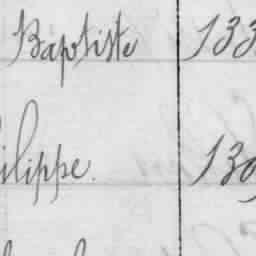 Baptiste 133
ilippe. 130